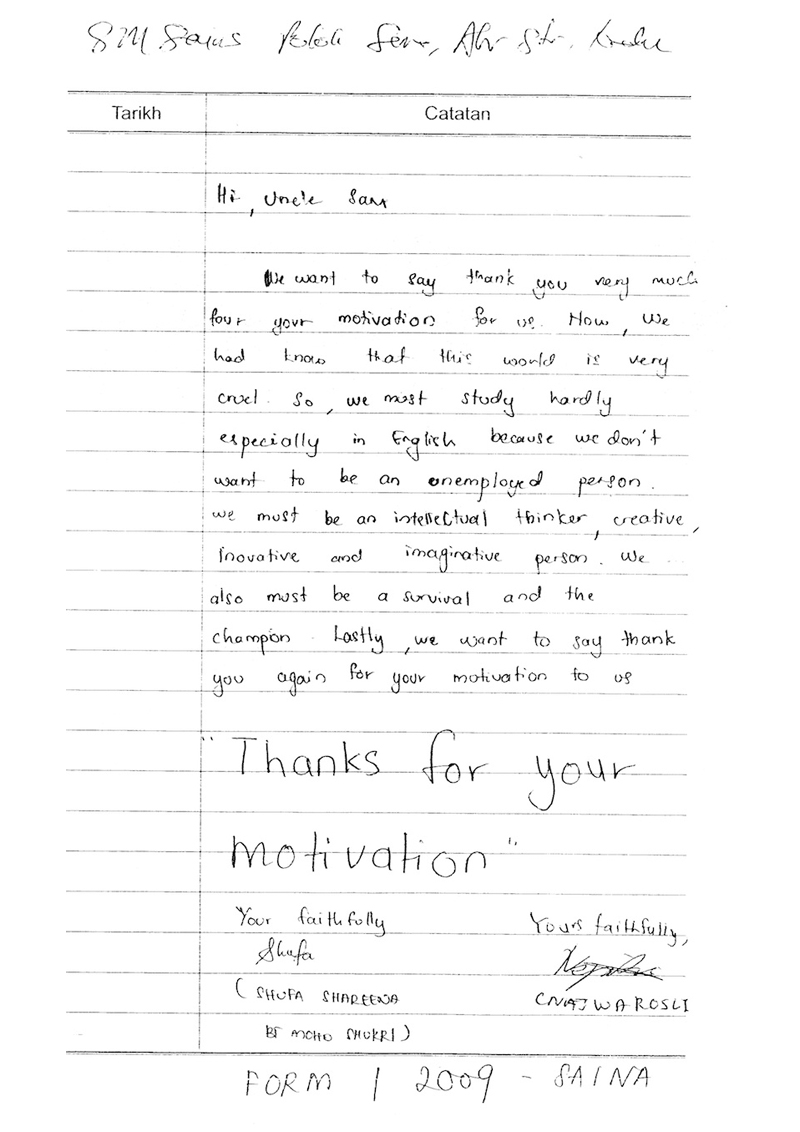 SM Sains
Tarikh Catatan
Hi, Uncle Sam
We want to say thank you very much
four your motivation for us. Now, We
had know that this world is very
cruel. So, we must study hardly
especially in English because we don't
want to be an unemployed person.
we must be an intellectual thinker, creative,
inovative and imaginative person. We
also must be a survival and the
champion. Lastly, we want to say thank
you again for your motivation to us
"Thanks for your
motivation"
Your faithfully Yours faithfully,
Shufa
(SHUFA SHAREENA CNAJWA ROSLI
BT MOHD SHUKRI)
FORM 1 2009 - SAINA